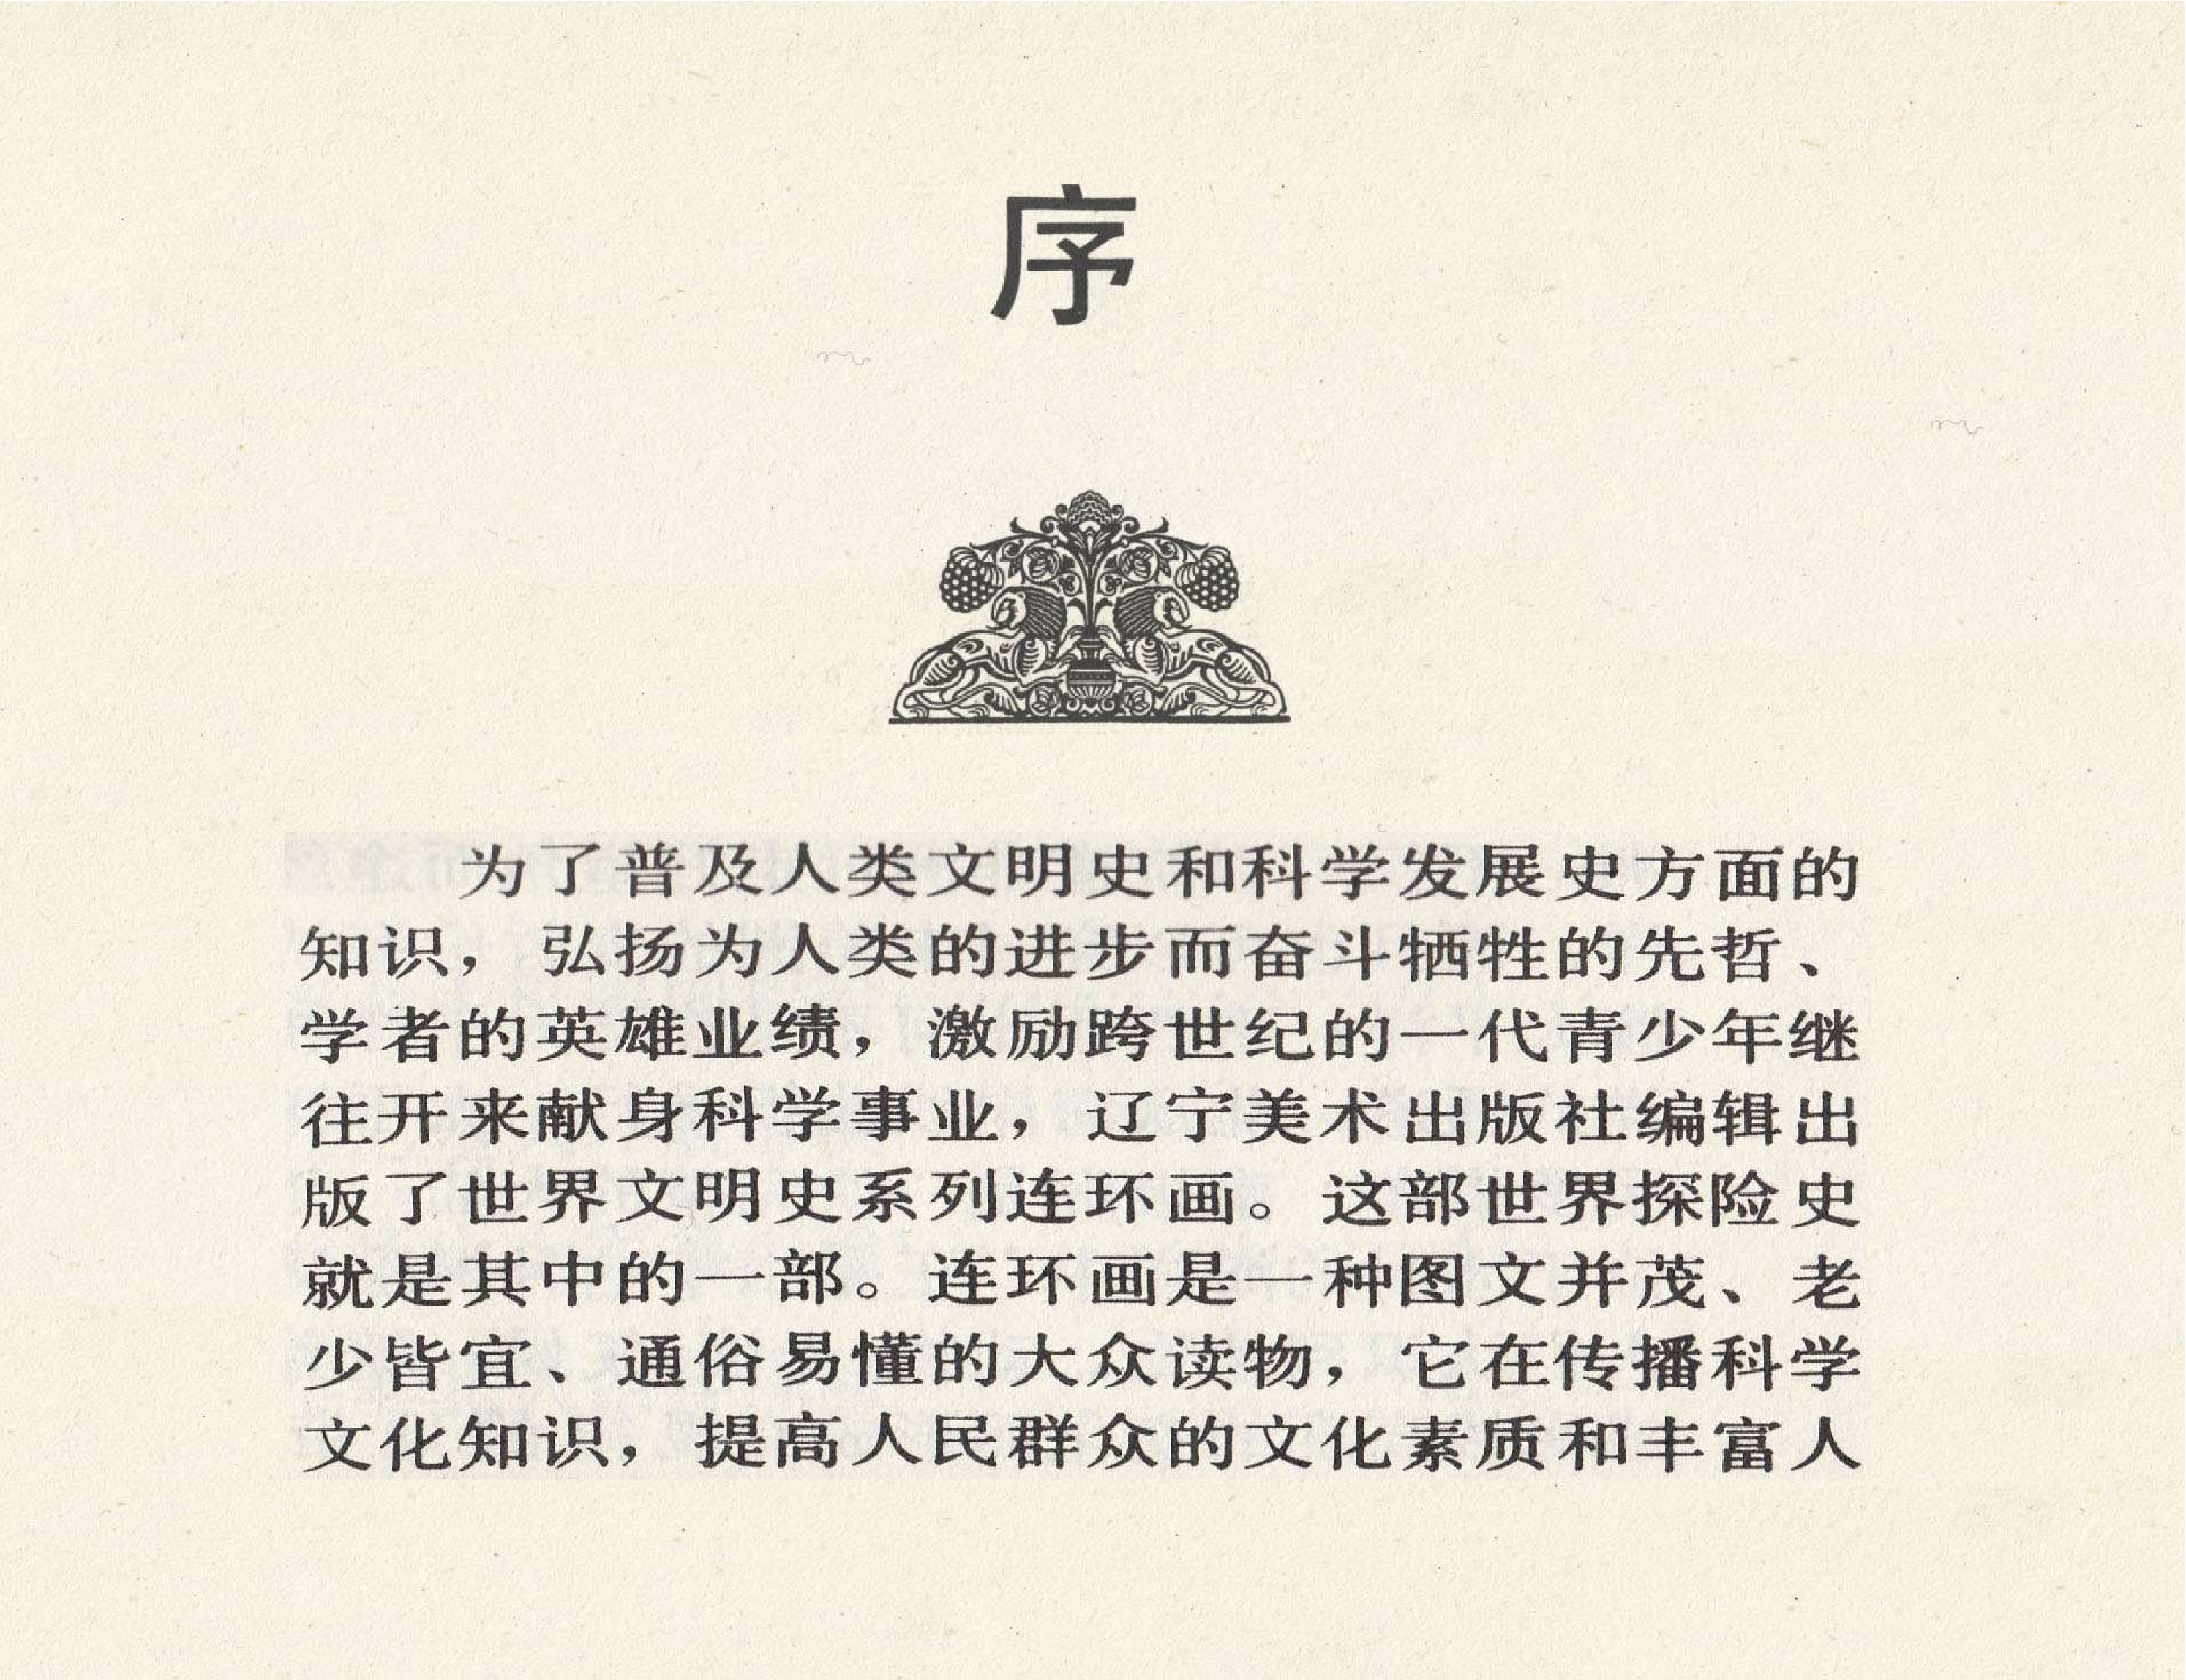 序
为了普及人类文明史和科学发展史方面的
知识，弘扬为人类的进步而奋斗牺牲的先哲、
学者的英雄业绩，激励跨世纪的一代青少年继
往开来献身科学事业，辽宁美术出版社编辑出
版了世界文明史系列连环画。这部世界探险史
就是其中的一部。连环画是一种图文并茂、老
少皆宜、通俗易懂的大众读物，它在传播科学
文化知识，提高人民群众的文化素质和丰富人